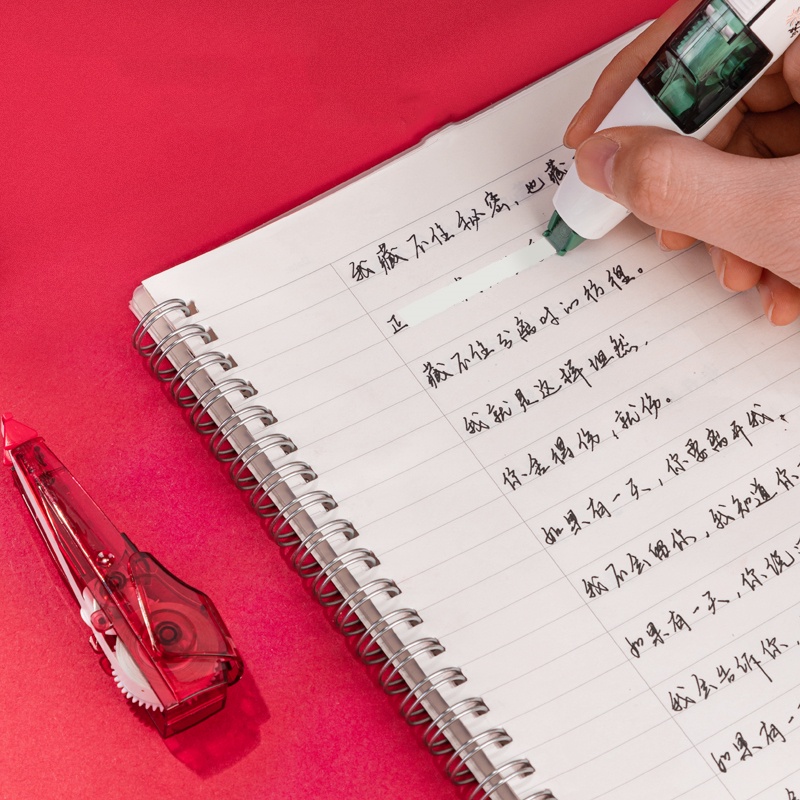 我藏不住秘密，也藏
正
藏不住分离时的彷徨。
我就是这样坦然，
你舍得伤，就伤。
如果有一天，你要离开我，
我不会留你，我知道你
如果有一天，你说
我会告诉你，
如果有一